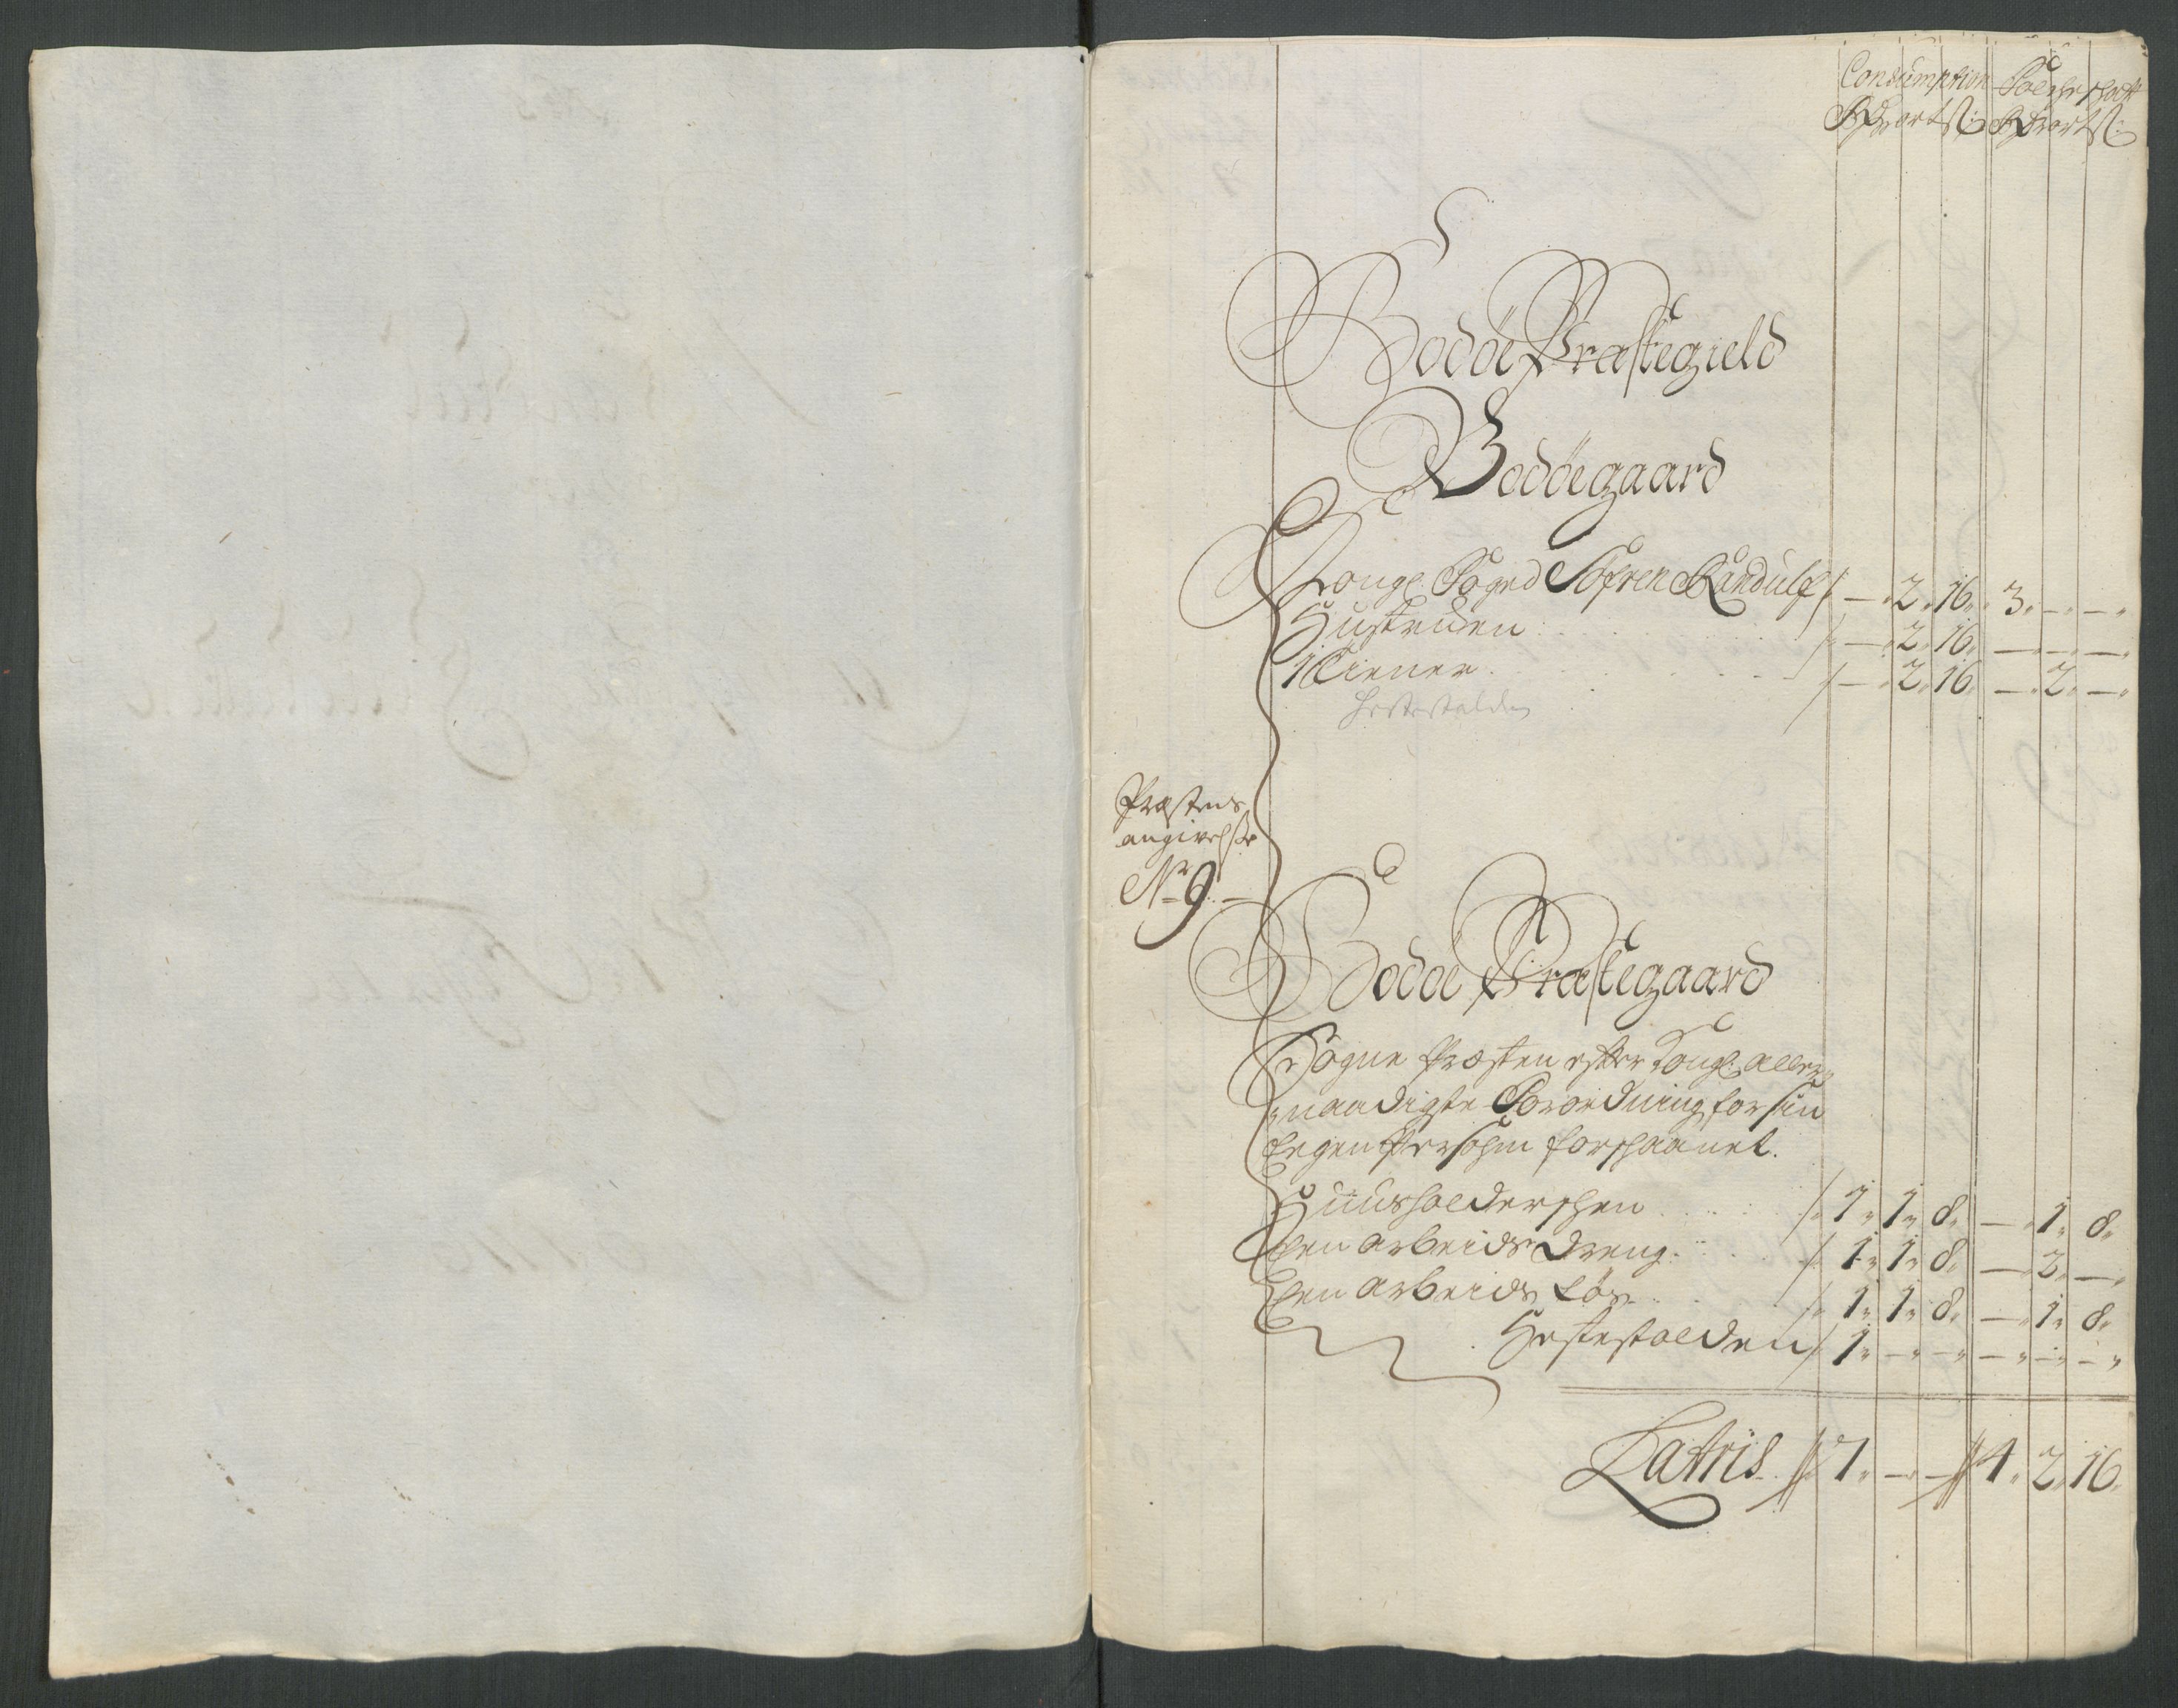 Consumption Folcheschatt
Rd ort s: Rd ort s:
Bodöe Præstegield
Bodöegaard
Kongl. Foged Söfren Randulf - 2 16 3 - -
Hustruen - 2 16 - - -
1 Tiener - 2 16 - 2 -
Hestestalden
Præstens
angivelsse
No 9
Bodöe Præstegaard
Sogne Præsten efter Kongl: aller
naadigste Forordning for sin
Eegen Persohn forschaanet.
Huusholderschen 1 1 8 - 1 8
Een arbeids Dreng 1 1 8 - 2 -
Een arbeids Tös 1 1 8 - 1 8
Hestestalden 1 - - - - -
Latris 7 - - 4 2 16